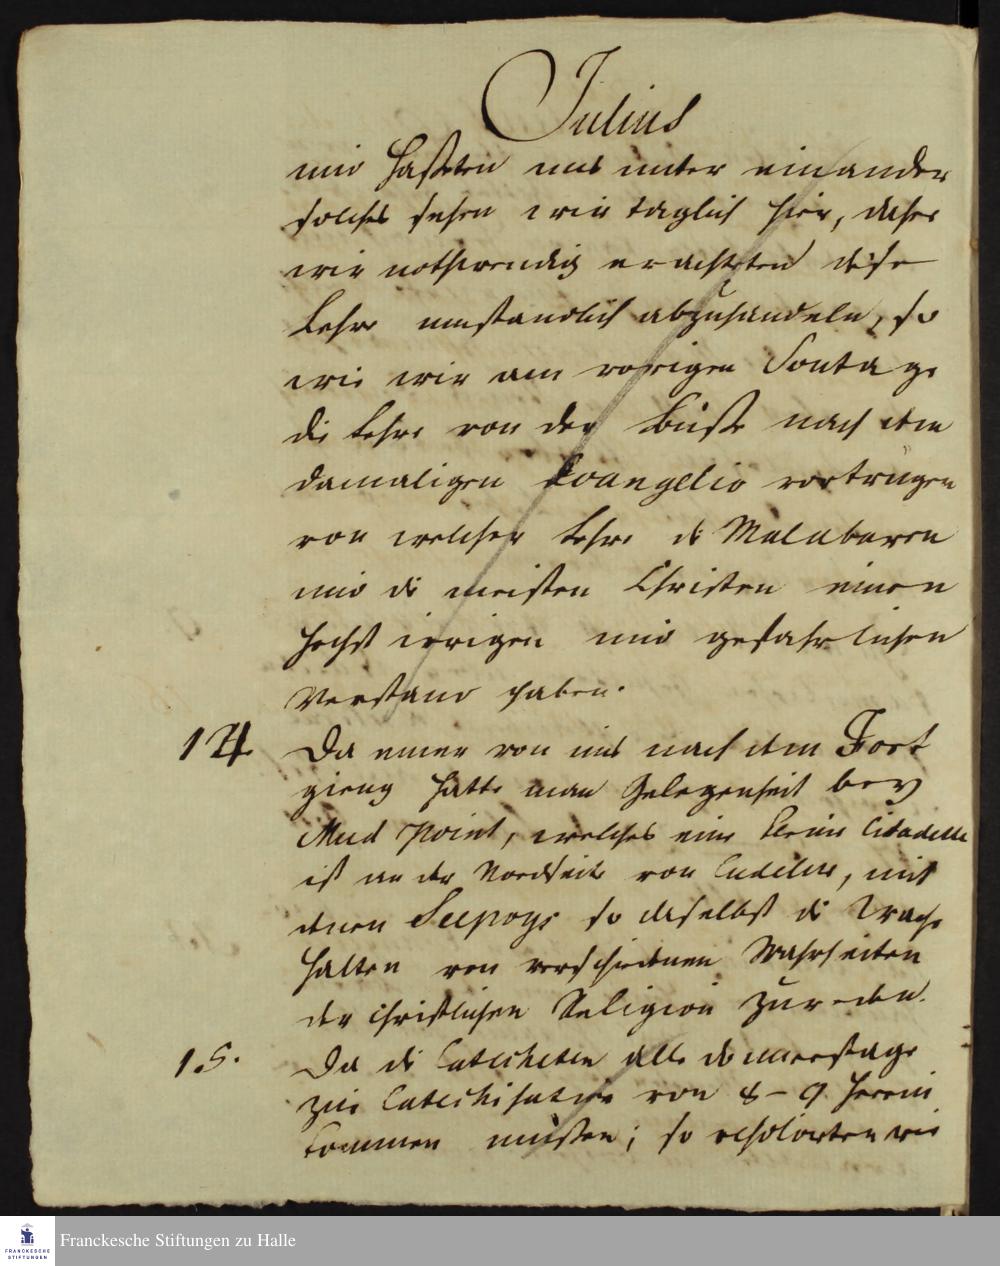 Julius
und haßeten uns unter einander
solches sehen wir taglich hier, daher
wir nothwendig erachteten diese
Lehre umstandlich abzuhandeln, so
wie wir am vorigen Sontage
die Lehre von der Buße nach dem
damaligen Evangelio vortrugen
von welcher Lehre die Malabaren
und die meisten Christen einen
hochst irrigen und gefahrlichen
Verstand haben.
14 Da einer von uns nach dem Fort
gieng hatte man Gelegenheit bey
Mud Point, welches eine kleine Citadelle
ist an der Nordseite von Cudelur, mit
denen Seepoys so daselbst die Wache
halten von verschiedenen Wahrheiten
der christlichen Religion zu reden.
15. Da die Catecheten alle donnerstage
zur Catechisation von 8-9 herein
kommen mußen; so resolvirten wir
Franckesche Stiftungen zu Halle
FRANCKESCHE
STIFTUNGEN